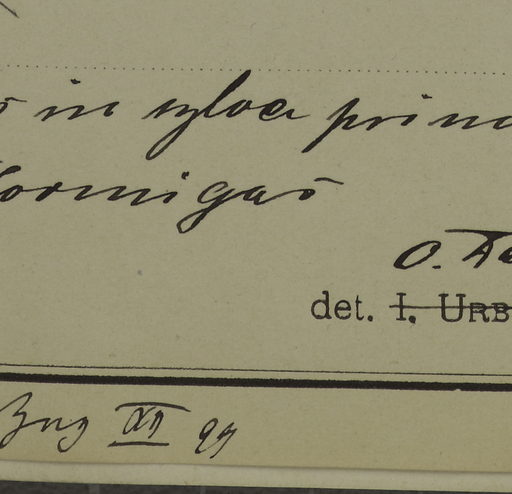 in sylva prim
Hormigas
O.
det. I. URB
XII 97